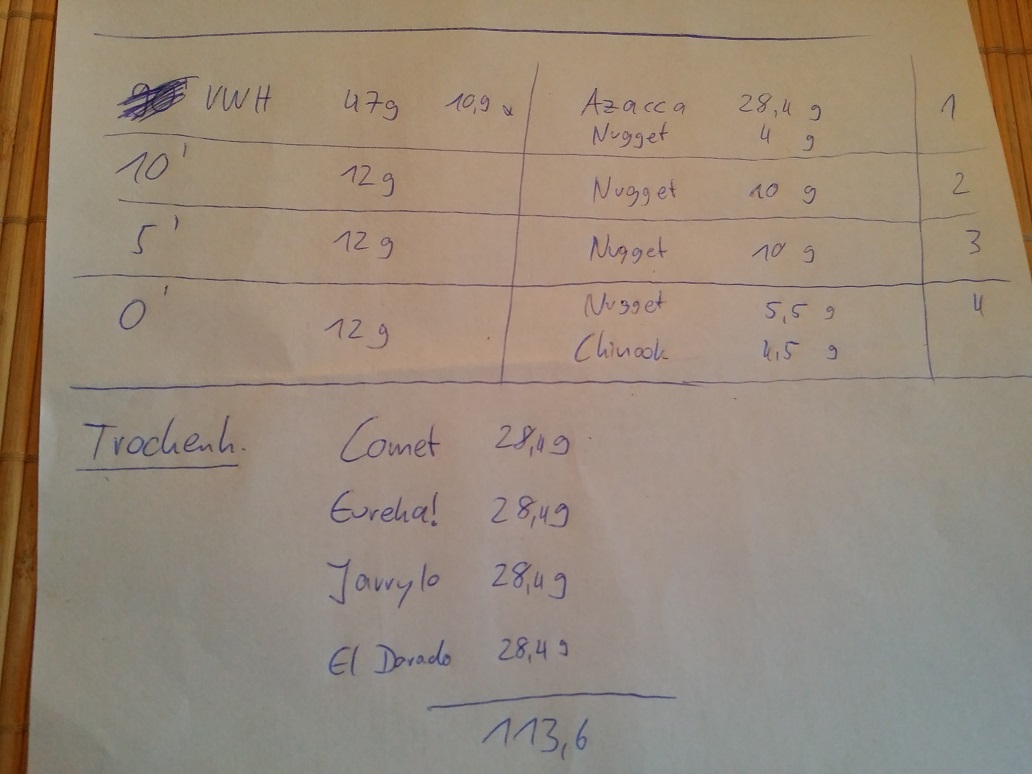 VWH 47g 10,9 Azacca 28,4 g 1
Nugget 4 g
10' 12g Nugget 10 g 2
5' 12g Nugget 10 g 3
0' 12g Nugget 5,5 g 4
Chinook 4,5 g
Trockenh. Comet 28,4g
Eureka! 28,4g
Jarrylo 28,4g
El Dorado 28,4g
113,6